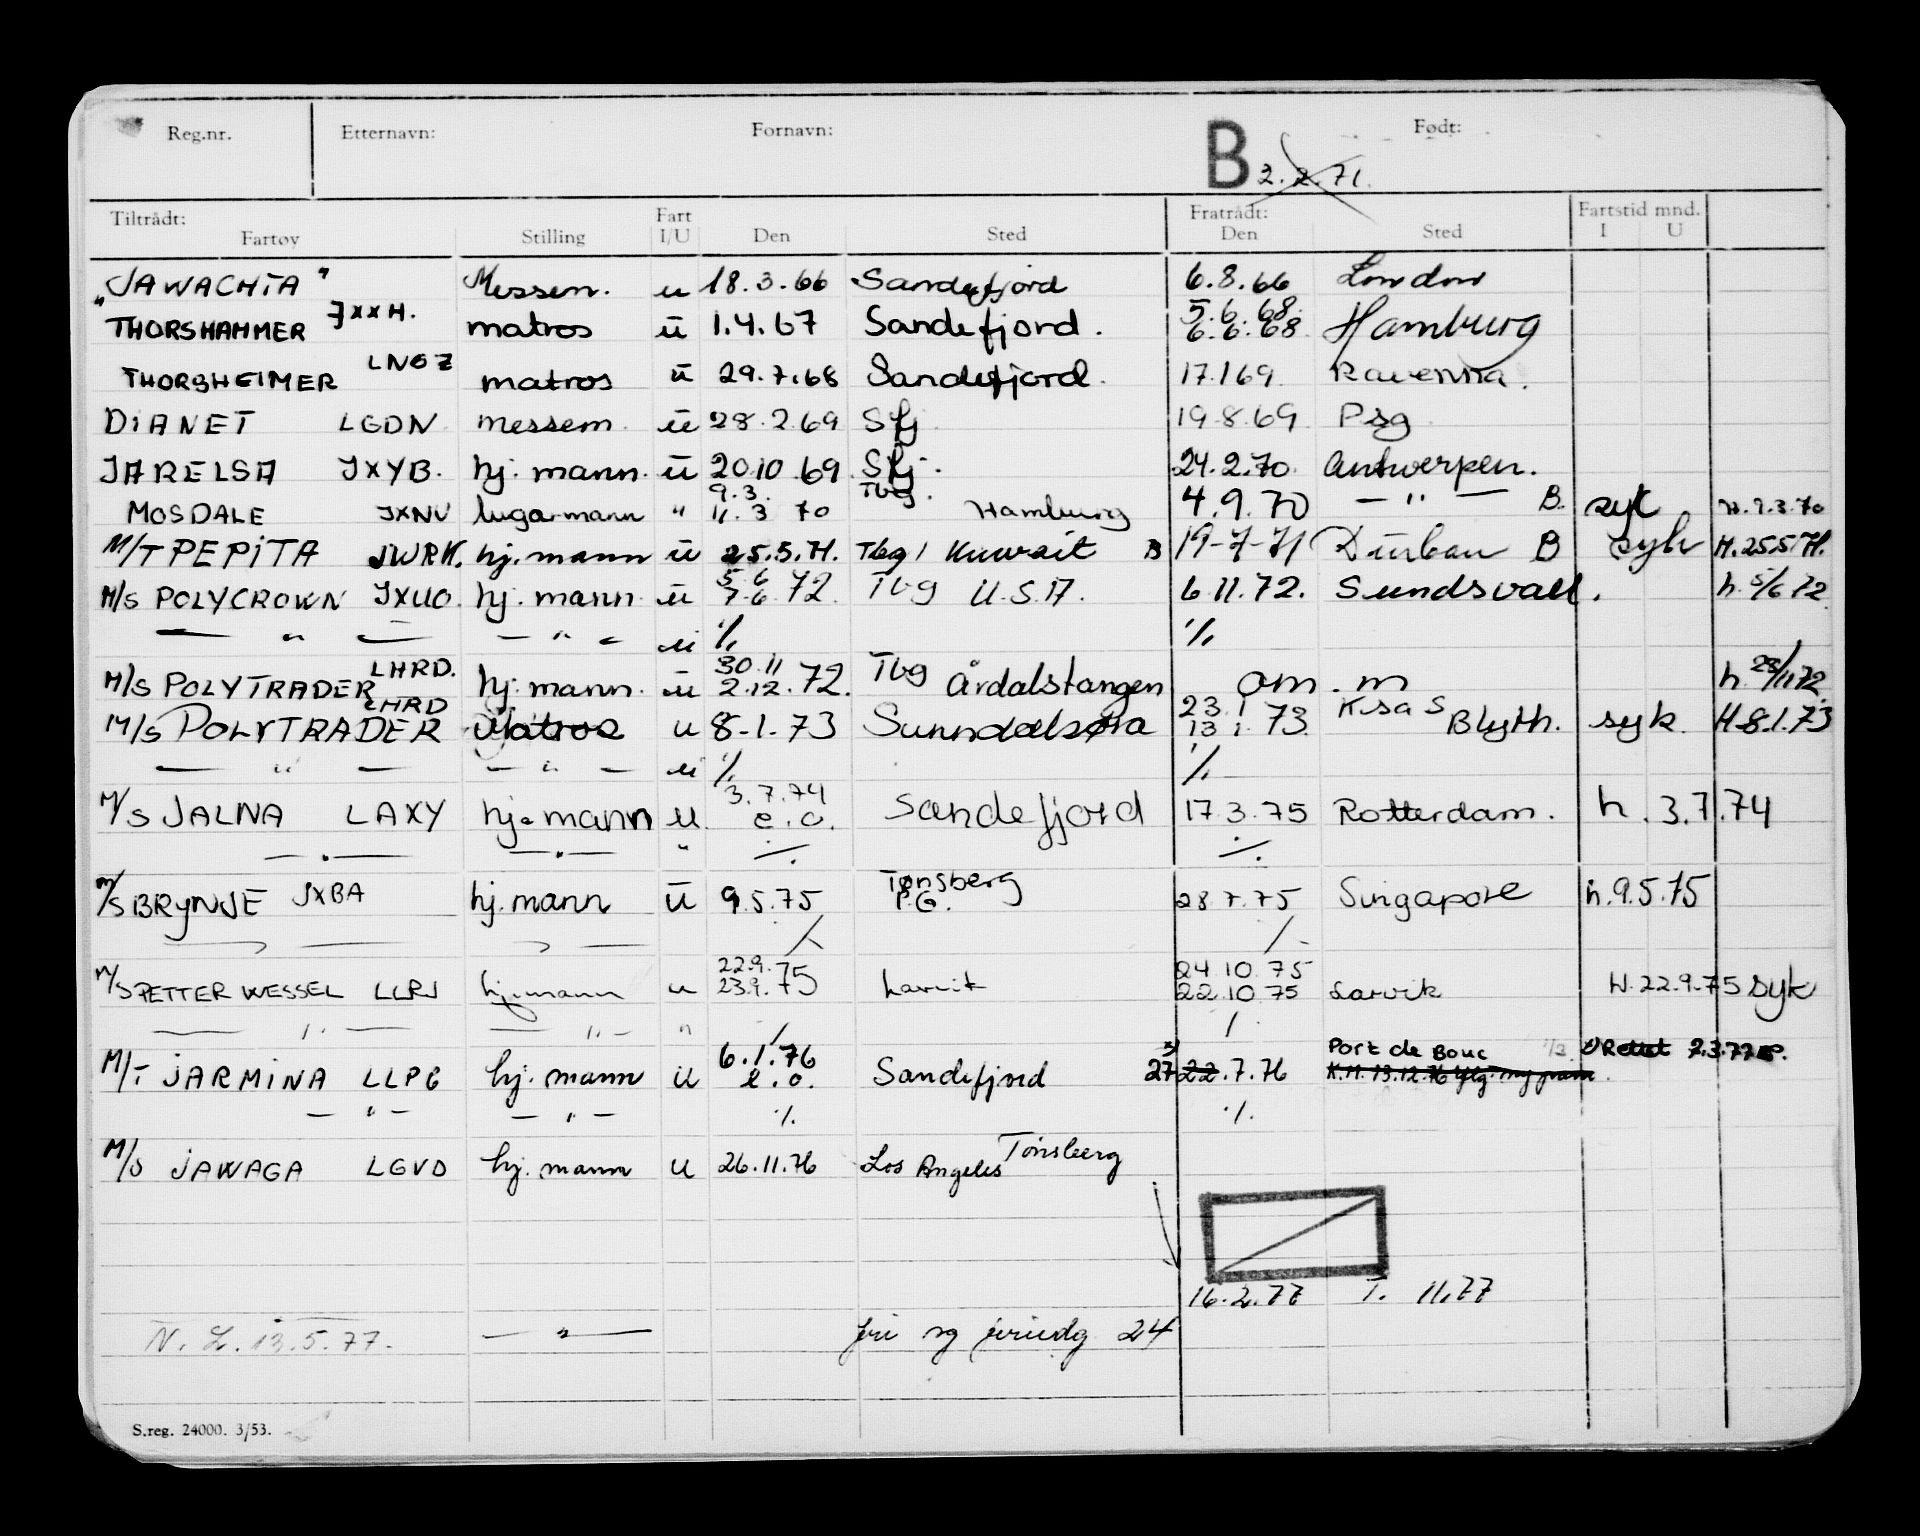 Reg.nr. Etternavn: Fornavn: Født:
B 2.2.71.
Tiltrådt: Fart Fratrådt: Fartstid mnd.
Fartøy Stilling I/U Den Sted Den Sted I U
"JAWACHTA" Messem. u 18.3.66 Sandefjord 6.8.66 London
JXXH. 5.6.68.
THORSHAMMER matros ū 1.4.67 Sandefjord. 6.6.68 Hamburg
LNGZ
THORSHEIMER matros ū 29.7.68 Sandefjord. 17.1 69. Ravenna.
DIANET LGDN messem. ū 28.2.69 Sfj 19.8.69 Psg
JARELSA JXYB. hj. mann. ū 20.10.69 Sfj. 24.2.70. Antwerpen.
9.3. Tbg.
MOSDALE JXNV lugarmann " 11.3 70 Hamburg 4.9.70 — " — B. syk H.9.3.70
M/T PEPITA JWRK. hj. mann ū 25.5.71. Tbg / Kuwait B 19-7-71 Durban B syk H.25.5.71.
5.6
M/S POLYCROWN JXUO. hj. mann. ū 7.6.72. Tbg U.S.A. 6.11.72. Sundsvall. h. 5/6 72.
— " — — " — u % %
LHRD. 30.11
M/S POLYTRADER hj. mann. ū 2.12.72. Tbg Årdalstangen om. m h. 28/11 72.
LHRD 23.1 K.sa S
M/S POLYTRADER Matros u 8-1.73 Sunndalsøra 13 1. 73. Blyth. syk. H.8.1.73
— " — — " — u % %
3.7.74
M/S JALNA LAXY hj. mann u. e.o. Sandefjord 17.3.75 Rotterdam. h. 3.7.74
— " — — " — " % %
Tønsberg
M/S BRYNJE JXBA hj. mann ū 9.5.75 P.G. 28 7.75 Singapore h.9.5.75
22.9. 24 10.75
M/S PETTER WESSEL LLRJ hj.mann u 23.9.75 Larvik 22.10 75 Larvik H.22.9.75 syk
— " — — " — "
6.1.76 Port de Bouc Rettet 2.3.77
M/T JARMINA LLPG hj. mann u e.o. Sandefjord 27 22.7.76 K.H. 13.12.76
— " — — " — % %
M/S JAWAGA LGVD hj. mann u 26.11.76 Los Angeles Tønsberg
16.2.77 T. 11.77
N.L.13.5.77. — " — fri og 24
S.reg. 24000. 3/53.